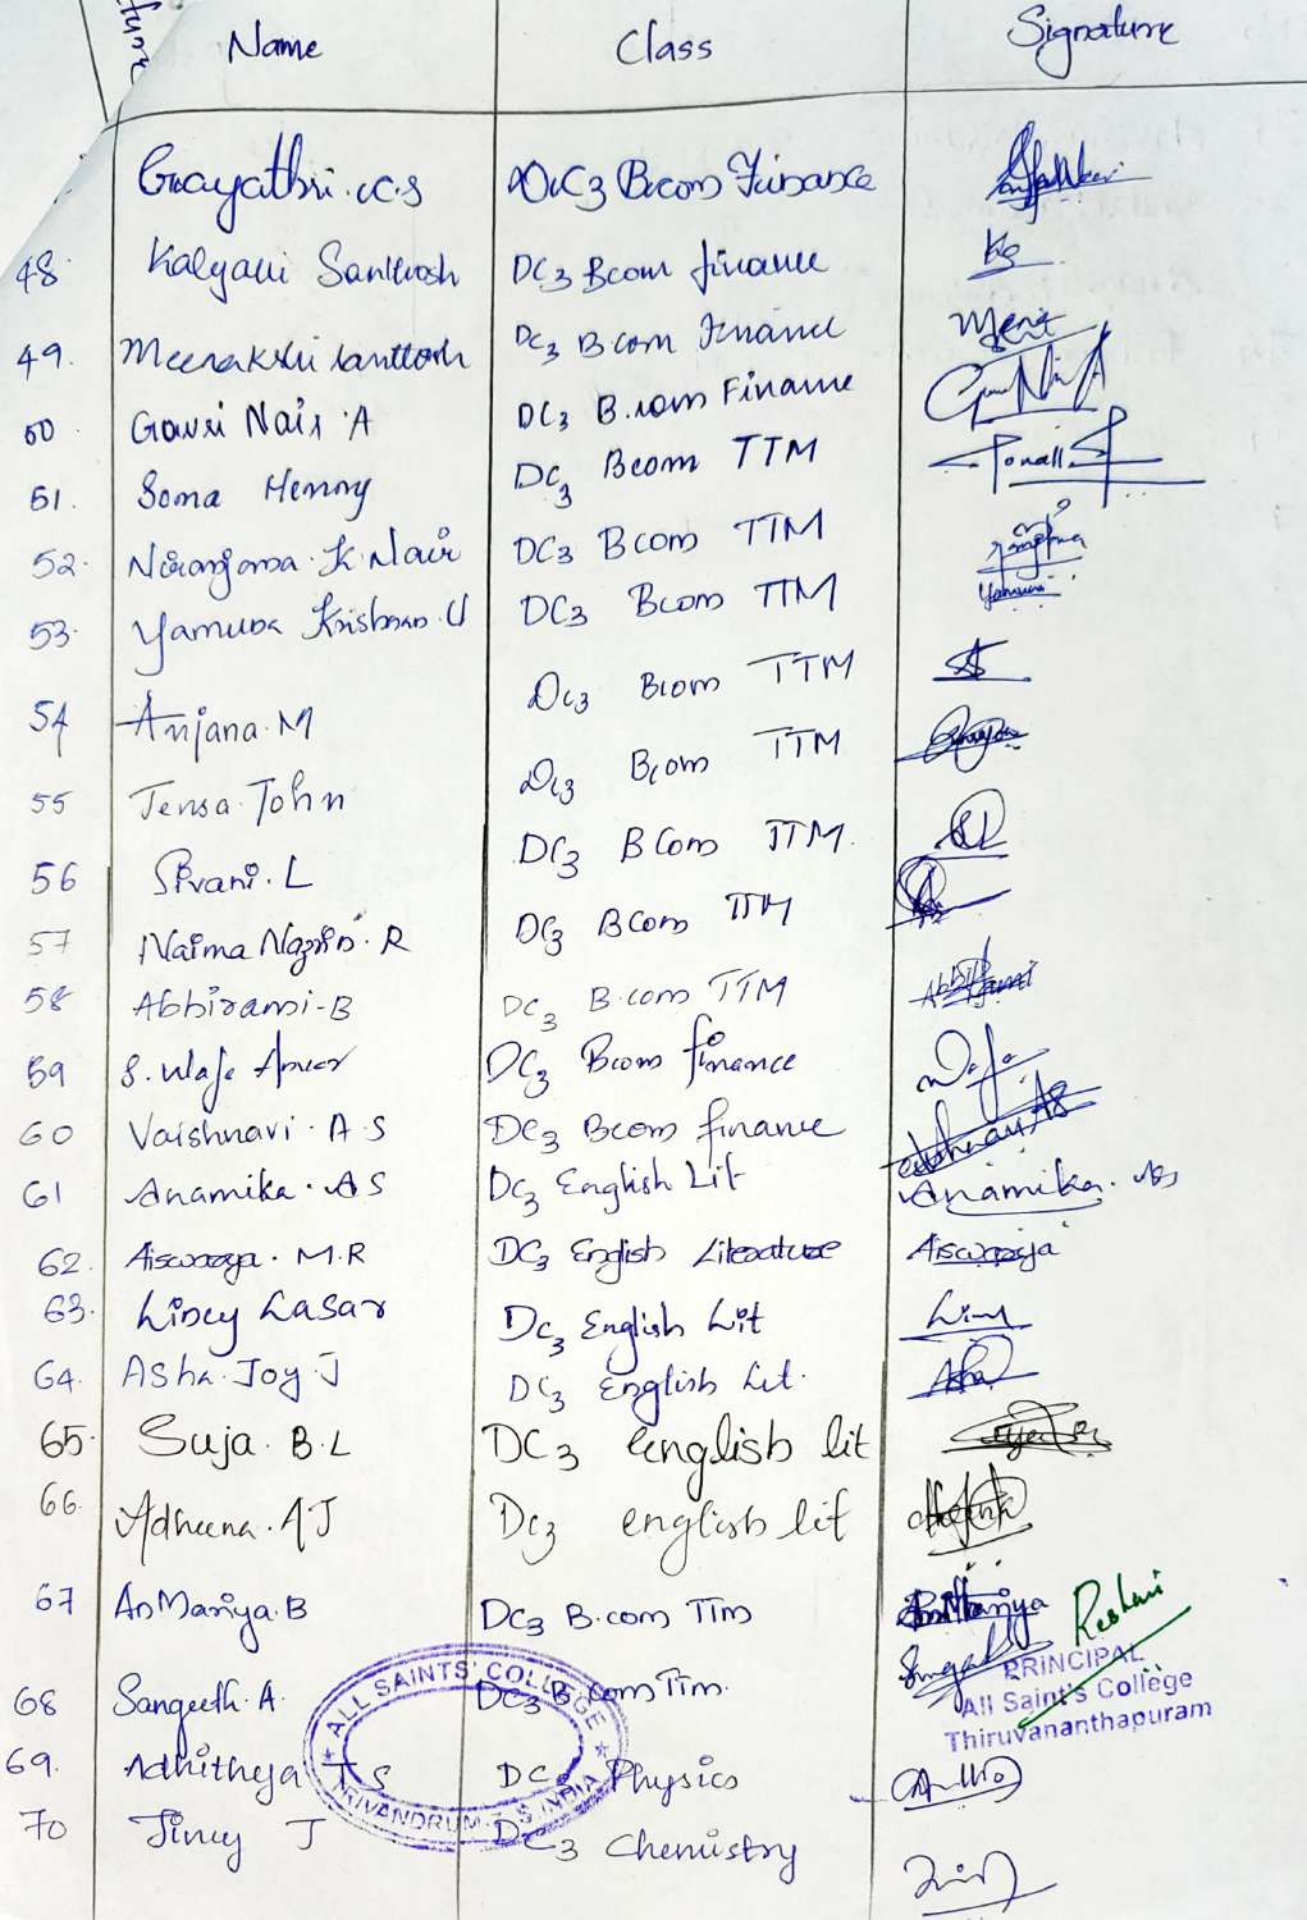 Name Class Signature
Gayathri. K.S DC3 Bcom Finance
48. Kalyani Santhosh DC3 Bcom finance KS
49. Meenakshi Santhosh DC3 Bcom Finance
50. Gouri Nair A DC3 B.com Finance
51. Soma Henry DC3 Bcom TTM
52. Niranjana K Nair DC3 Bcom TTM
53. Yamuna Krishnan U DC3 Bcom TTM Yamuna
54 Anjana M DC3 Bcom TTM
55 Jensa John DC3 Bcom TTM
56 Sivani. L DC3 BCom TTM.
57 Naima Nazrin. R DC3 BCom TTM
58 Abhirami-B DC3 B.com TTM Abhirami
59 S. DC3 Bcom finance
60 Vaishnavi. A.S DC3 Bcom finance
61 Anamika. AS DC3 English Lit Anamika. AS
62. Aiswarya. M.R DC3 English Literature Aiswarya
63. Lincy Lasar DC3 English Lit
64. Asha Joy J DC3 English Lit. Asha
65. Suja. B.L DC3 english lit
66. Adheena. A J DC3 english lit
67 An Mariya. B DC3 B.com TTM
PRINCIPAL
All Saint's College
Thiruvananthapuram
68 Sangeeth. A. DC3 B com TTM.
ALL SAINTS' COLLEGE
TRIVANDRUM - S. INDIA
69. Adhitheya T S DC3 Physics
70 Jincy J DC3 Chemistry